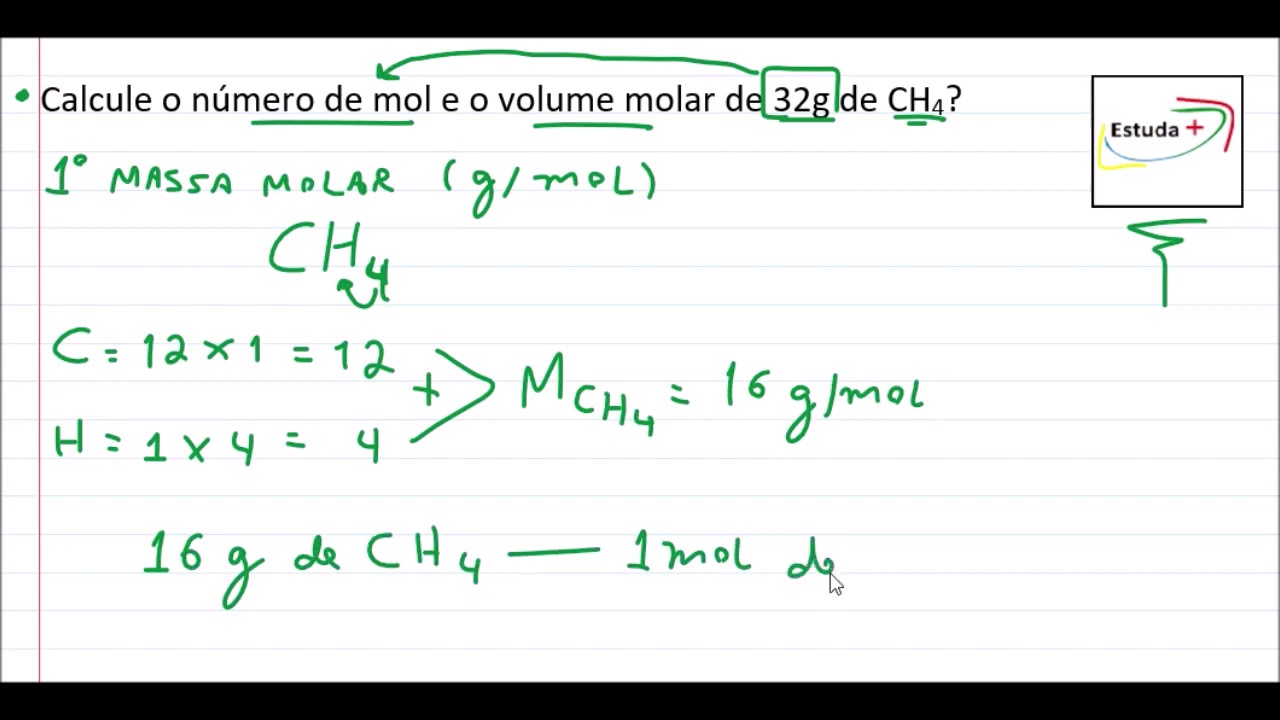 • Calcule o número de mol e o volume molar de 32g de CH₄?
Estuda +
1° MASSA MOLAR (g/mol)
CH₄
C = 12 x 1 = 12
+
H = 1 x 4 = 4
M CH₄ = 16 g/mol
16 g de CH₄ — 1 mol de